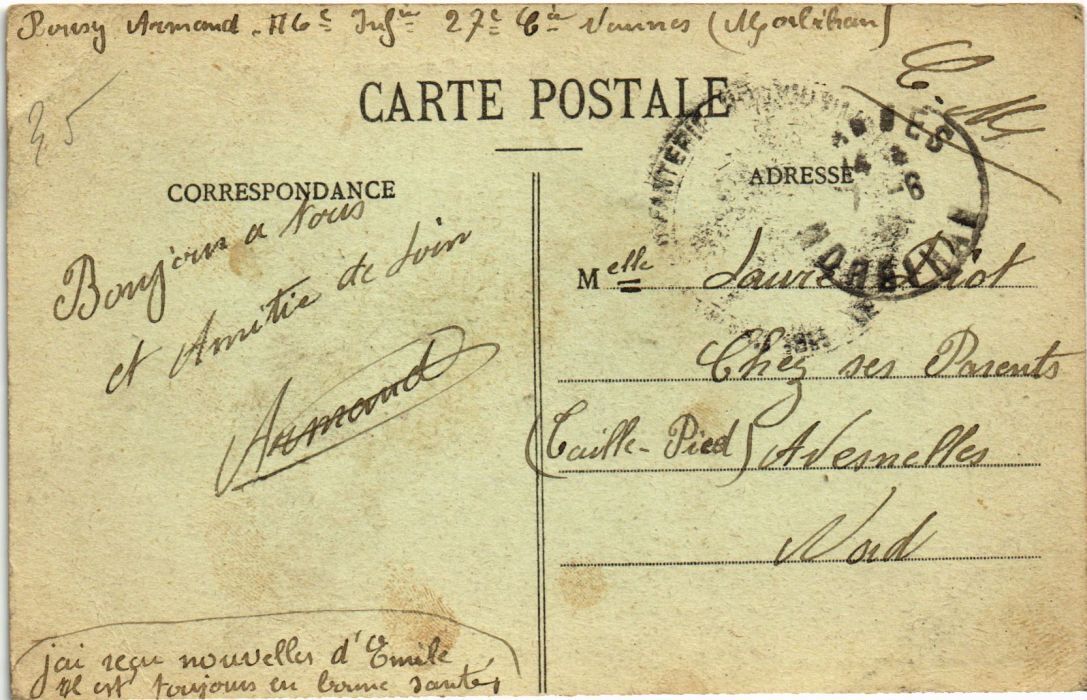 Armand. 116e Infie 27e Cie Vannes (Morbihan)
CARTE POSTALE
C. M
35
CORRESPONDANCE
ADRESSE
Bonjour a tous
et Amitié de Loin
Armand
Melle Laure Liot
Chez ses Parents
(Taille-Pied) Avesnelles
Nord
j'ai reçu nouvelles d'Emile
il est toujours en bonne santé,
NNES
14 - 6
MORBIHAN